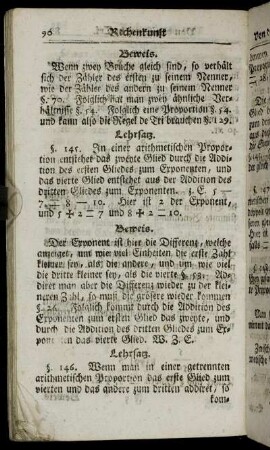 96 Rechenkunst
Beweis.
Wenn zwey Brüche gleich sind, so verhält
sich der Zähler des ersten zu seinem Nenner,
wie der Zähler des andern zu seinem Nenner
§. 70. Folglich hat man zwey ähnliche Ver-
hältnisse §. 54. Folglich eine Proportion §. 54.
und kann also die Regel de Tri brauchen §. 129.
Lehrsatz.
§. 145. In einer arithmetischen Propor-
tion entstehet das zweyte Glied durch die Addi-
tion des ersten Gliedes zum Exponenten, und
das vierte Glied entstehet aus der Addition des
dritten Gliedes zum Exponenten. z. E. 5 —
7 = 8 — 10. Hier ist 2 der Exponent,
und 5 + 2 = 7 und 8 + 2 = 10.
Beweis.
Der Exponent ist hier die Differenz, welche
anzeiget, um wie viel Einheiten die erste Zahl
kleiner sey, als die andere, und um wie viel
die dritte kleiner sey, als die vierte §. 53. Ad-
diret man aber die Differenz wieder zu der klei-
neren Zahl, so muß die grösere wieder kommen
§. 26. Folglich kommt durch die Addition des
Exponenten zum ersten Glied das zweyte, und
durch die Addition des dritten Gliedes zum Ex-
ponenten das vierte Glied. W. Z. E.
Lehrsatz.
§. 146. Wenn man in einer getrennten
arithmetischen Proportion das erste Glied zum
vierten und das andere zum dritten addiret, so
kom-